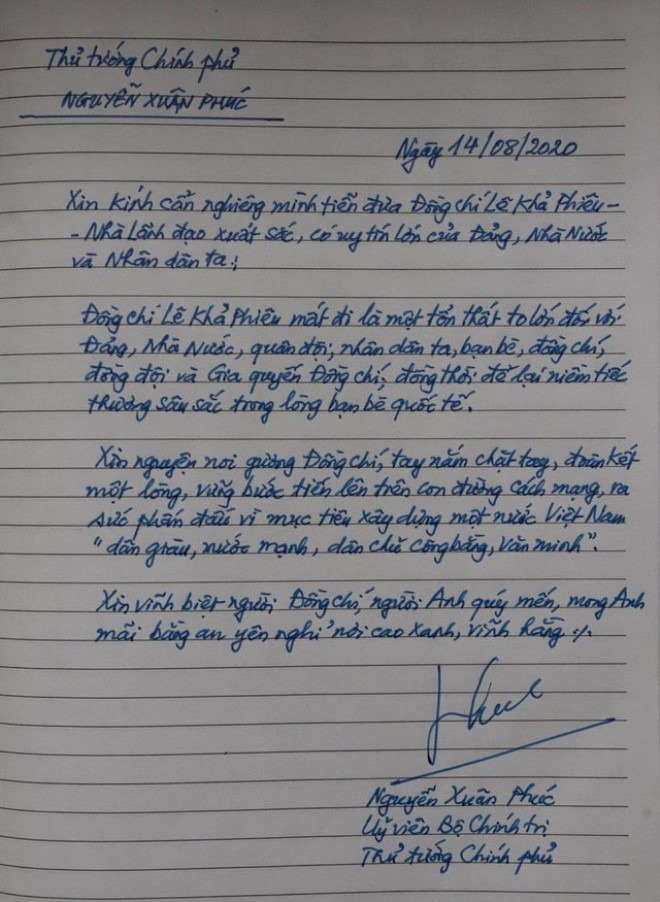 Thủ tướng Chính phủ
NGUYỄN XUÂN PHÚC
Ngày 14/08/2020
Xin kính cẩn nghiêng mình tiễn đưa Đồng chí Lê Khả Phiêu -
- Nhà Lãnh đạo xuất sắc, có uy tín lớn của Đảng, Nhà Nước
và Nhân dân ta;
Đồng chí Lê Khả Phiêu mất đi là một tổn thất to lớn đối với
Đảng, Nhà Nước, quân đội, nhân dân ta, bạn bè, đồng chí,
đồng đội và Gia quyến Đồng chí, đồng thời để lại niềm tiếc
thương sâu sắc trong lòng bạn bè quốc tế.
Xin nguyện noi gương Đồng chí, tay nắm chặt tay, đoàn kết
một lòng, vững bước tiến lên trên con đường cách mạng, ra
sức phấn đấu vì mục tiêu xây dựng một nước Việt Nam
"dân giàu, nước mạnh, dân chủ công bằng, văn minh".
Xin vĩnh biệt người Đồng chí, người Anh quý mến, mong Anh
mãi bằng an yên nghỉ nơi cao xanh, vĩnh hằng ./.
Phuc
Nguyễn Xuân Phúc
Uỷ viên Bộ Chính trị
Thủ tướng Chính phủ